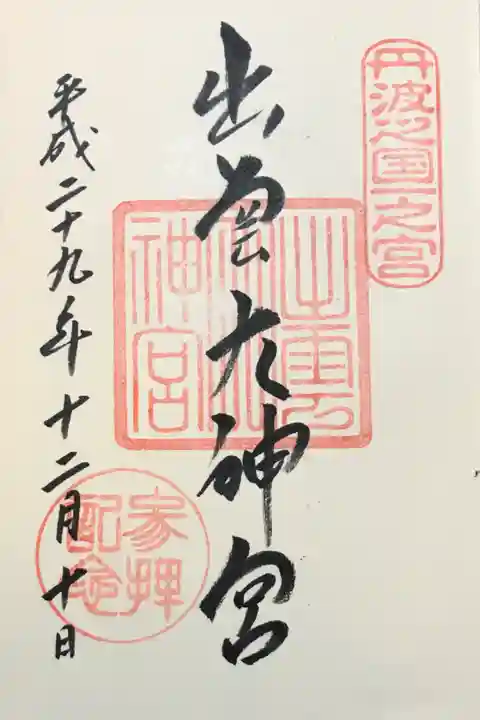 丹波国一之宮
出雲大神宮
出雲大神宮
平成二十九年十二月十日
参拝記念